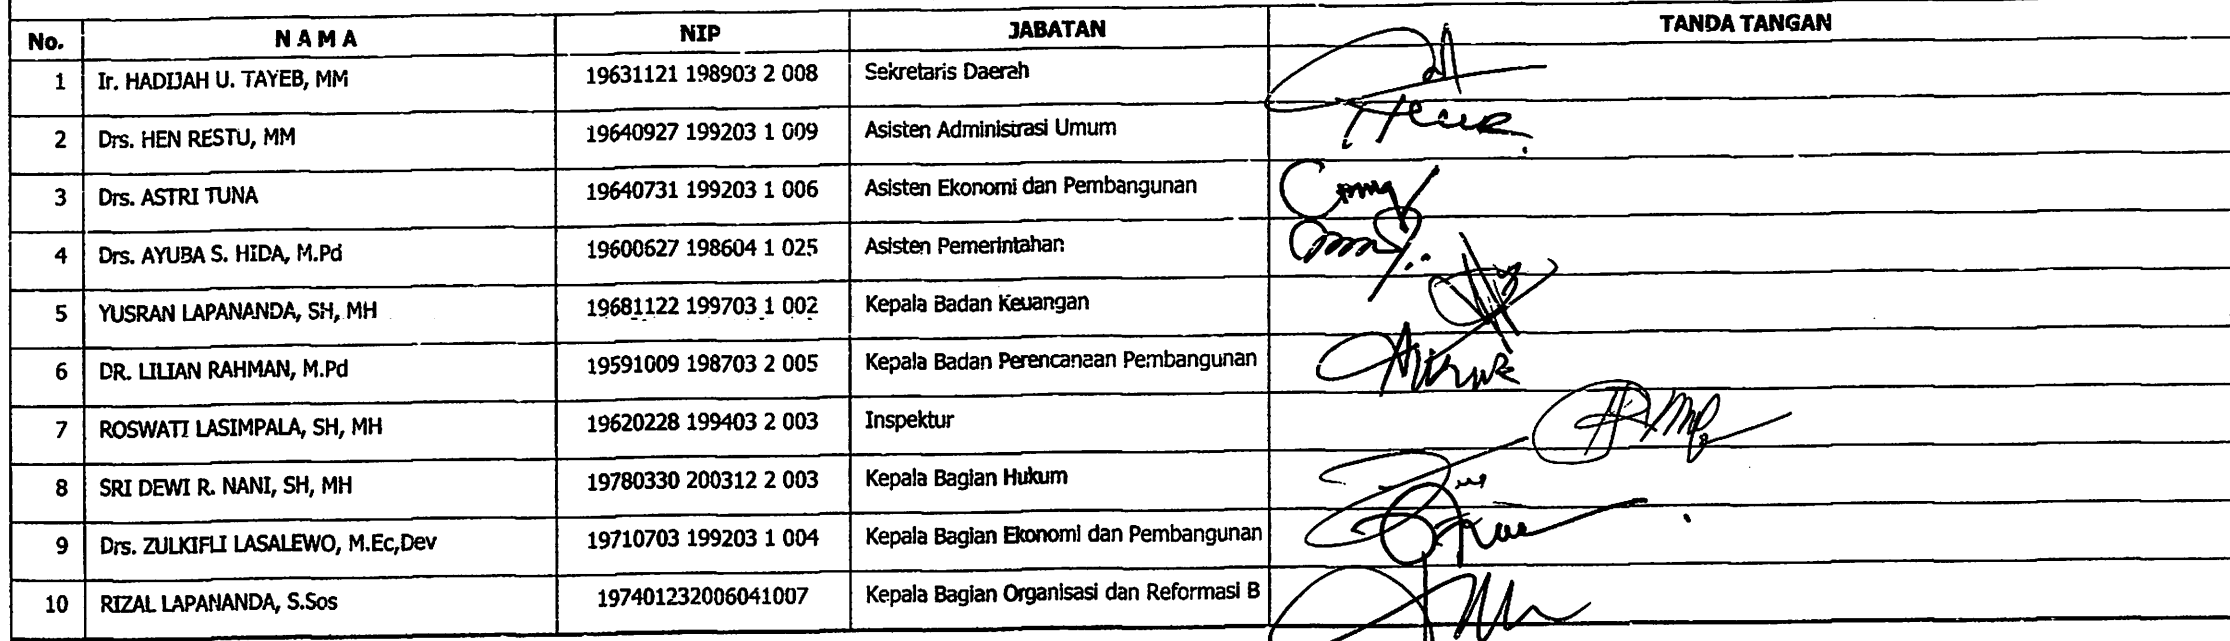 No. N A M A NIP JABATAN TANDA TANGAN
1 Ir. HADIJAH U. TAYEB, MM 19631121 198903 2 008 Sekretaris Daerah
2 Drs. HEN RESTU, MM 19640927 199203 1 009 Asisten Administrasi Umum
3 Drs. ASTRI TUNA 19640731 199203 1 006 Asisten Ekonomi dan Pembangunan
4 Drs. AYUBA S. HIDA, M.Pd 19600627 198604 1 025 Asisten Pemerintahan
5 YUSRAN LAPANANDA, SH, MH 19681122 199703 1 002 Kepala Badan Keuangan
6 DR. LILIAN RAHMAN, M.Pd 19591009 198703 2 005 Kepala Badan Perencanaan Pembangunan
7 ROSWATI LASIMPALA, SH, MH 19620228 199403 2 003 Inspektur
8 SRI DEWI R. NANI, SH, MH 19780330 200312 2 003 Kepala Bagian Hukum
9 Drs. ZULKIFLI LASALEWO, M.Ec,Dev 19710703 199203 1 004 Kepala Bagian Ekonomi dan Pembangunan
10 RIZAL LAPANANDA, S.Sos 197401232006041007 Kepala Bagian Organisasi dan Reformasi B